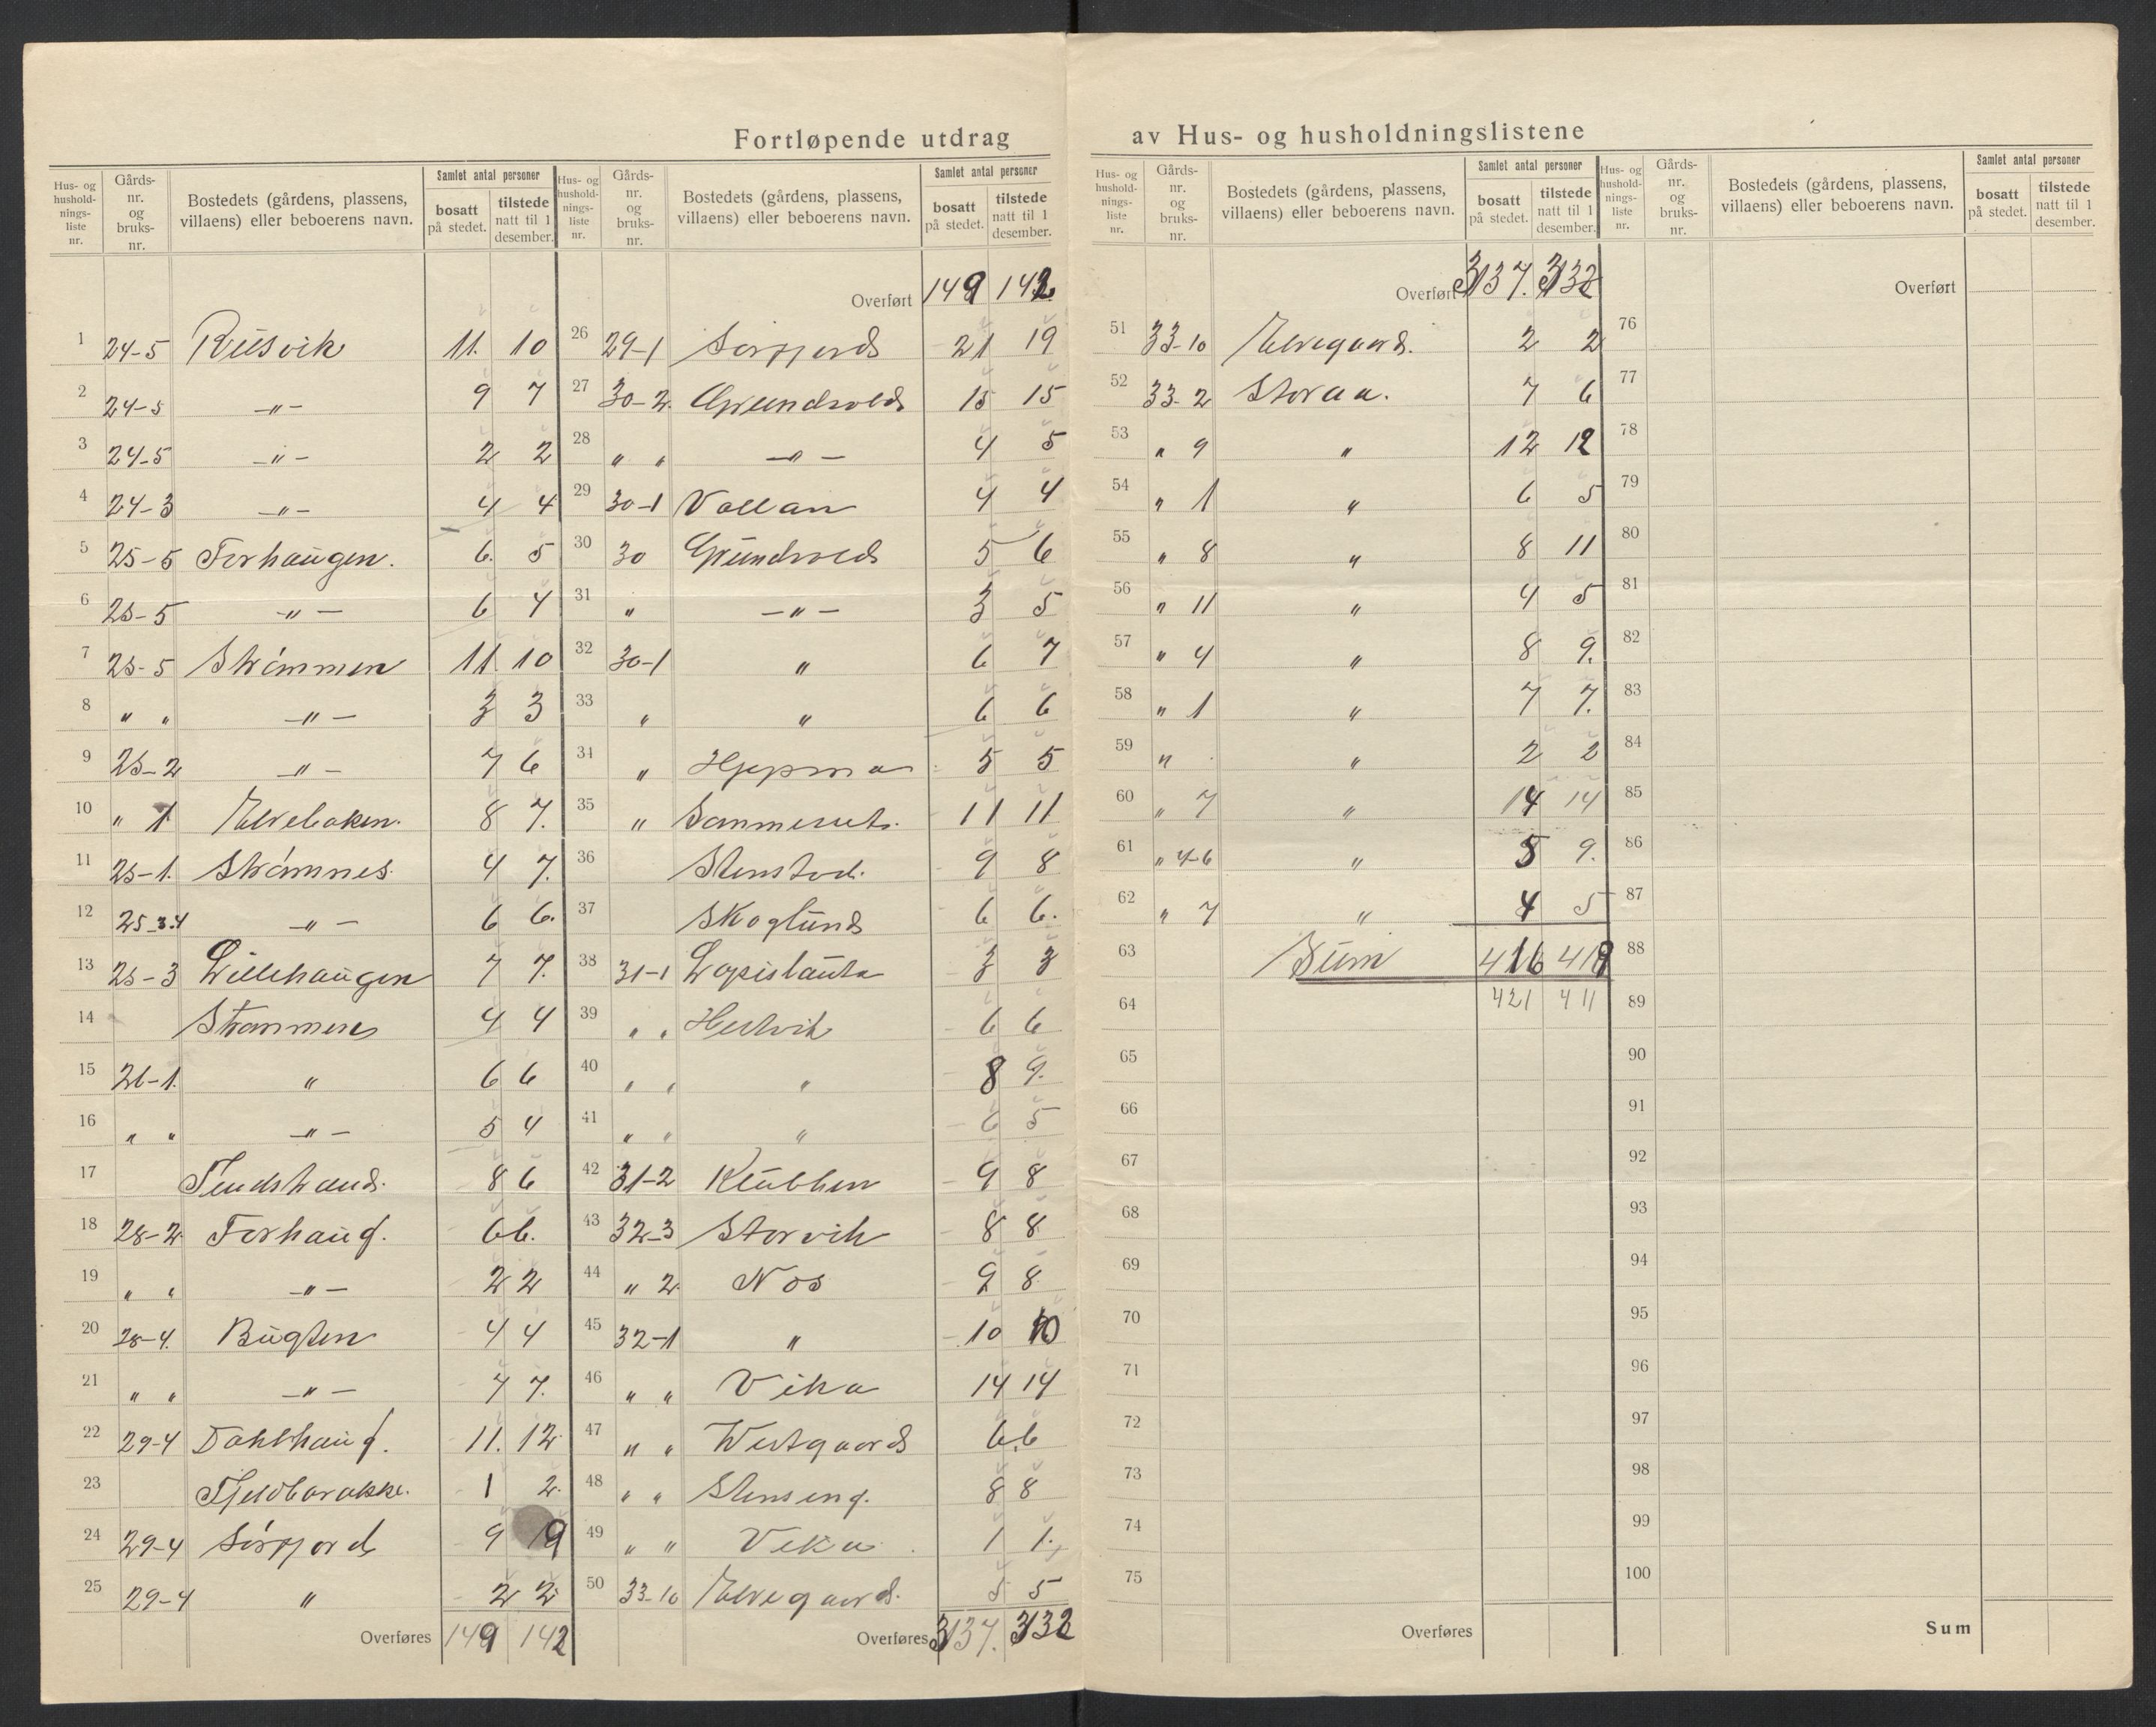 Fortløpende utdrag av Hus- og husholdningslistene
Hus- og hushold-nings-liste nr. Gårds-nr. og bruks-nr. Bostedets (gårdens, plassens, villaens) eller beboerens navn. Samlet antal personer bosatt på stedet. tilstede natt til 1 desember.
1 24-5 Rüsvik 11. 10
2 24-5 -"- 9 7
3 24-5 -"- 2 2
4 24-3 -"- 4 4
5 25-5 Forhaugen. 6. 5
6 25-5 -"- 6 4
7 25-5 Strömmen 11. 10
8 " " -"- 3 3
9 25-2 -"- 7 6
10 " 1 Elvebakken. 8 7.
11 25-1. Strömnes. 4 7.
12 25-3.4 -"- 6 6.
13 25-3 Lillehaugen 7 7.
14 Strømmen 4 4
15 26-1. " 6 6
16 " " -"- 5 4
17 8 6
18 28-2 Forhaug. 6 6.
19 " " -"- 2 2
20 28-4. Bugten 4 4
21 " " -"- 7 7.
22 29-4 Dahlhaug. 11. 12
23 Fjeldbarakke. 1 2.
24 29-4 Sörfjord 9 9
25 29-4 " 2 2
Overføres 149 142
Hus- og hushold-nings-liste nr. Gårds-nr. og bruks-nr. Bostedets (gårdens, plassens, villaens) eller beboerens navn. Samlet antal personer bosatt på stedet. tilstede natt til 1 desember.
Overført 149 142
26 29-1 Sörfjord 21 19
27 30-2. Grundvold 15 15
28 " " -"- 4 5
29 30-1 Vollan 4 4
30 30 Grundvold 5 6
31 " -"- 3 5
32 30-1 " 6 7
33 " " 6 6
34 " 5 5
35 " Sommerset. 11 11
36 Stenstad. 9 8
37 Skoglund 6 6.
38 31-1 Lapislauta 3 3
39 " " Hestvik 6 6
40 " " " 8 9.
41 " " " 6 5
42 31-2 Klubben 9 8
43 32-3 Storvik 8 8
44 " 2. Nos 9 8.
45 32-1 " 10 10
46 " " Vika 14 14
47 " " Westgaard 6 6
48 " " Stenseng. 8 8
49 " " Vika 1 1.
50 33-10 Elvegaard. 5 5
Overføres 3137. 3132
Hus- og hushold-nings-liste nr. Gårds-nr. og bruks-nr. Bostedets (gårdens, plassens, villaens) eller beboerens navn. Samlet antal personer bosatt på stedet. tilstede natt til 1 desember.
Overført 3137. 3132
51 33-10 Elvegaard. 2 2
52 33-2 Storaa. 7 6
53 " 9 " 12 12
54 " 1 " 6 5
55 " 8 " 8 11
56 " 11 " 4 5
57 " 4 " 8 9.
58 " 1 " 7 7.
59 " " 2 2
60 " 7 " 14 14
61 " 4-6 " 5 9.
62 " 7 " 4 5
63 Sum 416 419
64 421 411
65
66
67
68
69
70
71
72
73
74
75
Overføres
Hus- og hushold-nings-liste nr. Gårds-nr. og bruks-nr. Bostedets (gårdens, plassens, villaens) eller beboerens navn. Samlet antal personer bosatt på stedet. tilstede natt til 1 desember.
Overført
76
77
78
79
80
81
82
83
84
85
86
87
88
89
90
91
92
93
94
95
96
97
98
99
100
Sum